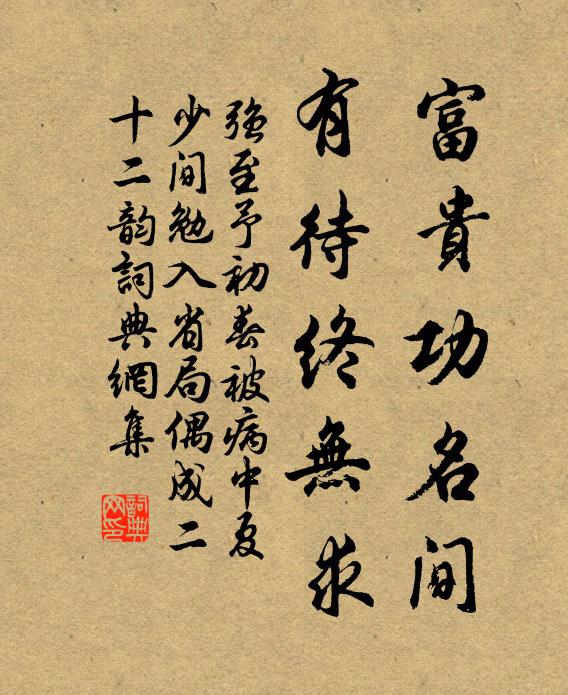 富貴功名間
有待終無求
强至予初春被病中夏
少间勉入省局偶成二
十二韵詞典網集
詞典
网印